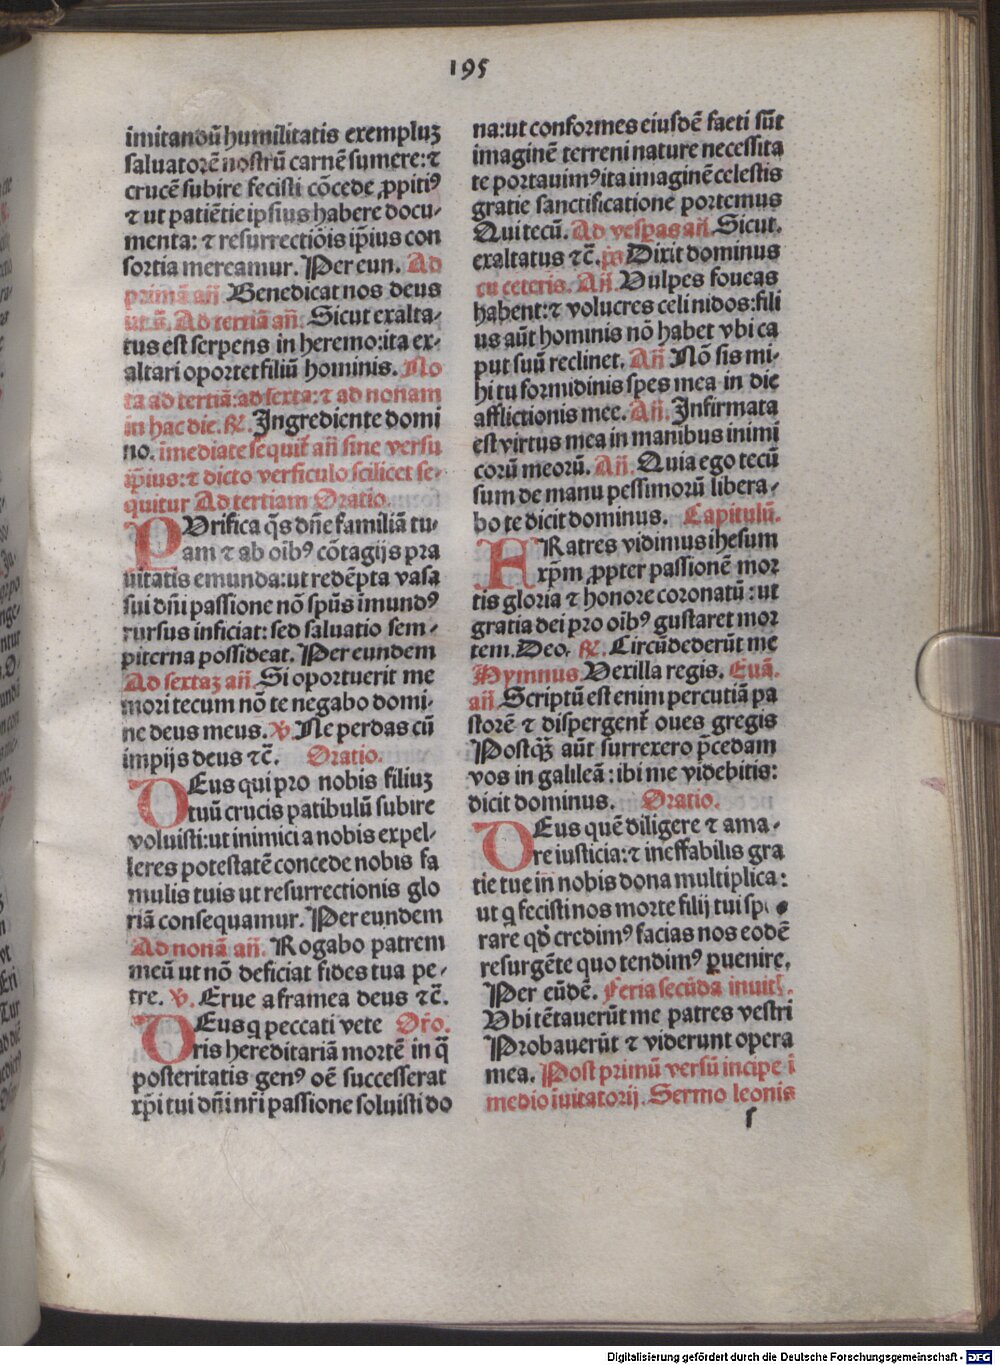 195
imitandū humilitatis exempluꝫ
saluatorē nostrū carnē sumere: ⁊
crucē subire fecisti cōcede ꝓpitiꝰ
⁊ ut patiētie ipsius habere docu-
menta: ⁊ resurrectiōis ip̄ius con
sortia mereamur. Per eun. Ad
primā añ Benedicat nos deus
ut ū. Ad tertiā añ. Sicut exalta-
tus est serpens in heremo: ita ex-
altari oportet filiū hominis. No
ta ad tertiā: ad sexta: ⁊ ad nonam
in hac die. ℟. Ingrediente domi
no. īmediate sequit̄ añ sine versu
ip̄ius: ⁊ dicto versiculo scilicet se-
quitur Ad tertiam Oratio.
PUrifica q̄s dn̄e familiā tu-
am ⁊ ab oībꝰ cōtagijs pra
uitatis emunda: ut redēpta vasa
sui dn̄i passione nō sp̄us īmundꝰ
rursus inficiat: sed saluatio sem-
piterna possideat. Per eundem
Ad sextaꝫ añ Si oportuerit me
mori tecum nō te negabo domi-
ne deus meus. ℣. Ne perdas cū
impijs deus ⁊c̄. Oratio.
DEus qui pro nobis filiuꝫ
tuū crucis patibulū subire
voluisti: ut inimici a nobis expel-
leres potestatē concede nobis fa
mulis tuis ut resurrectionis glo
riā consequamur. Per eundem
Ad nonā añ. Rogabo patrem
meū ut nō deficiat fides tua pe-
tre. ℣. Erue a framea deus ⁊c̄.
DEus q̄ peccati vete Or̄o.
ris hereditariā mortē in q̄
posteritatis genꝰ oē successerat
xp̄i tui dn̄i nr̄i passione soluisti do
na: ut conformes eiusdē facti sūt
imaginē terreni nature necessita
te portauimꝰ ita imaginē celestis
gratie sanctificatione portemus
Qui tecū. Ad vesp̄as añ. Sicut
exaltatus ⁊c̄. p̄s Dixit dominus
cū ceteris. Añ. Vulpes foueas
habent: ⁊ volucres celi nidos: fili
us aūt hominis nō habet vbi ca
put suū reclinet. Añ Nō sis mi-
hi tu formidinis spes mea in die
afflictionis mee. Añ. Infirmata
est virtus mea in manibus inimi
corū meorū. Añ Quia ego tecū
sum de manu pessimorū libera-
bo te dicit dominus. Capitulū.
FRatres vidimus ihesum
xp̄m ꝓpter passionē mor
tis gloria ⁊ honore coronatū: ut
gratia dei pro oībꝰ gustaret mor
tem. Deo. ℟. Circūdederūt me
Hymnus Vexilla regis. Euā.
añ Scriptū est enim percutiā pa
storē ⁊ dispergent̄ oues gregis
Postq̄ꝫ aūt surrexero p̄cedam
vos in galileā: ibi me videbitis:
dicit dominus. Oratio.
DEus quē diligere ⁊ ama-
re iusticia: ⁊ ineffabilis gra
tie tue in nobis dona multiplica:
ut q̄ fecisti nos morte filij tui spe
rare qd̄ credimꝰ facias nos eodē
resurgēte quo tendimꝰ ꝑuenire.
Per eūdē. Feria secūda inuit.
Vbi tētauerūt me patres vestri
Probauerūt ⁊ viderunt opera
mea. Post primū versū incipe ī
medio īuitatorij. Sermo leonis
s
Digitalisierung gefördert durch die Deutsche Forschungsgemeinschaft - DFG